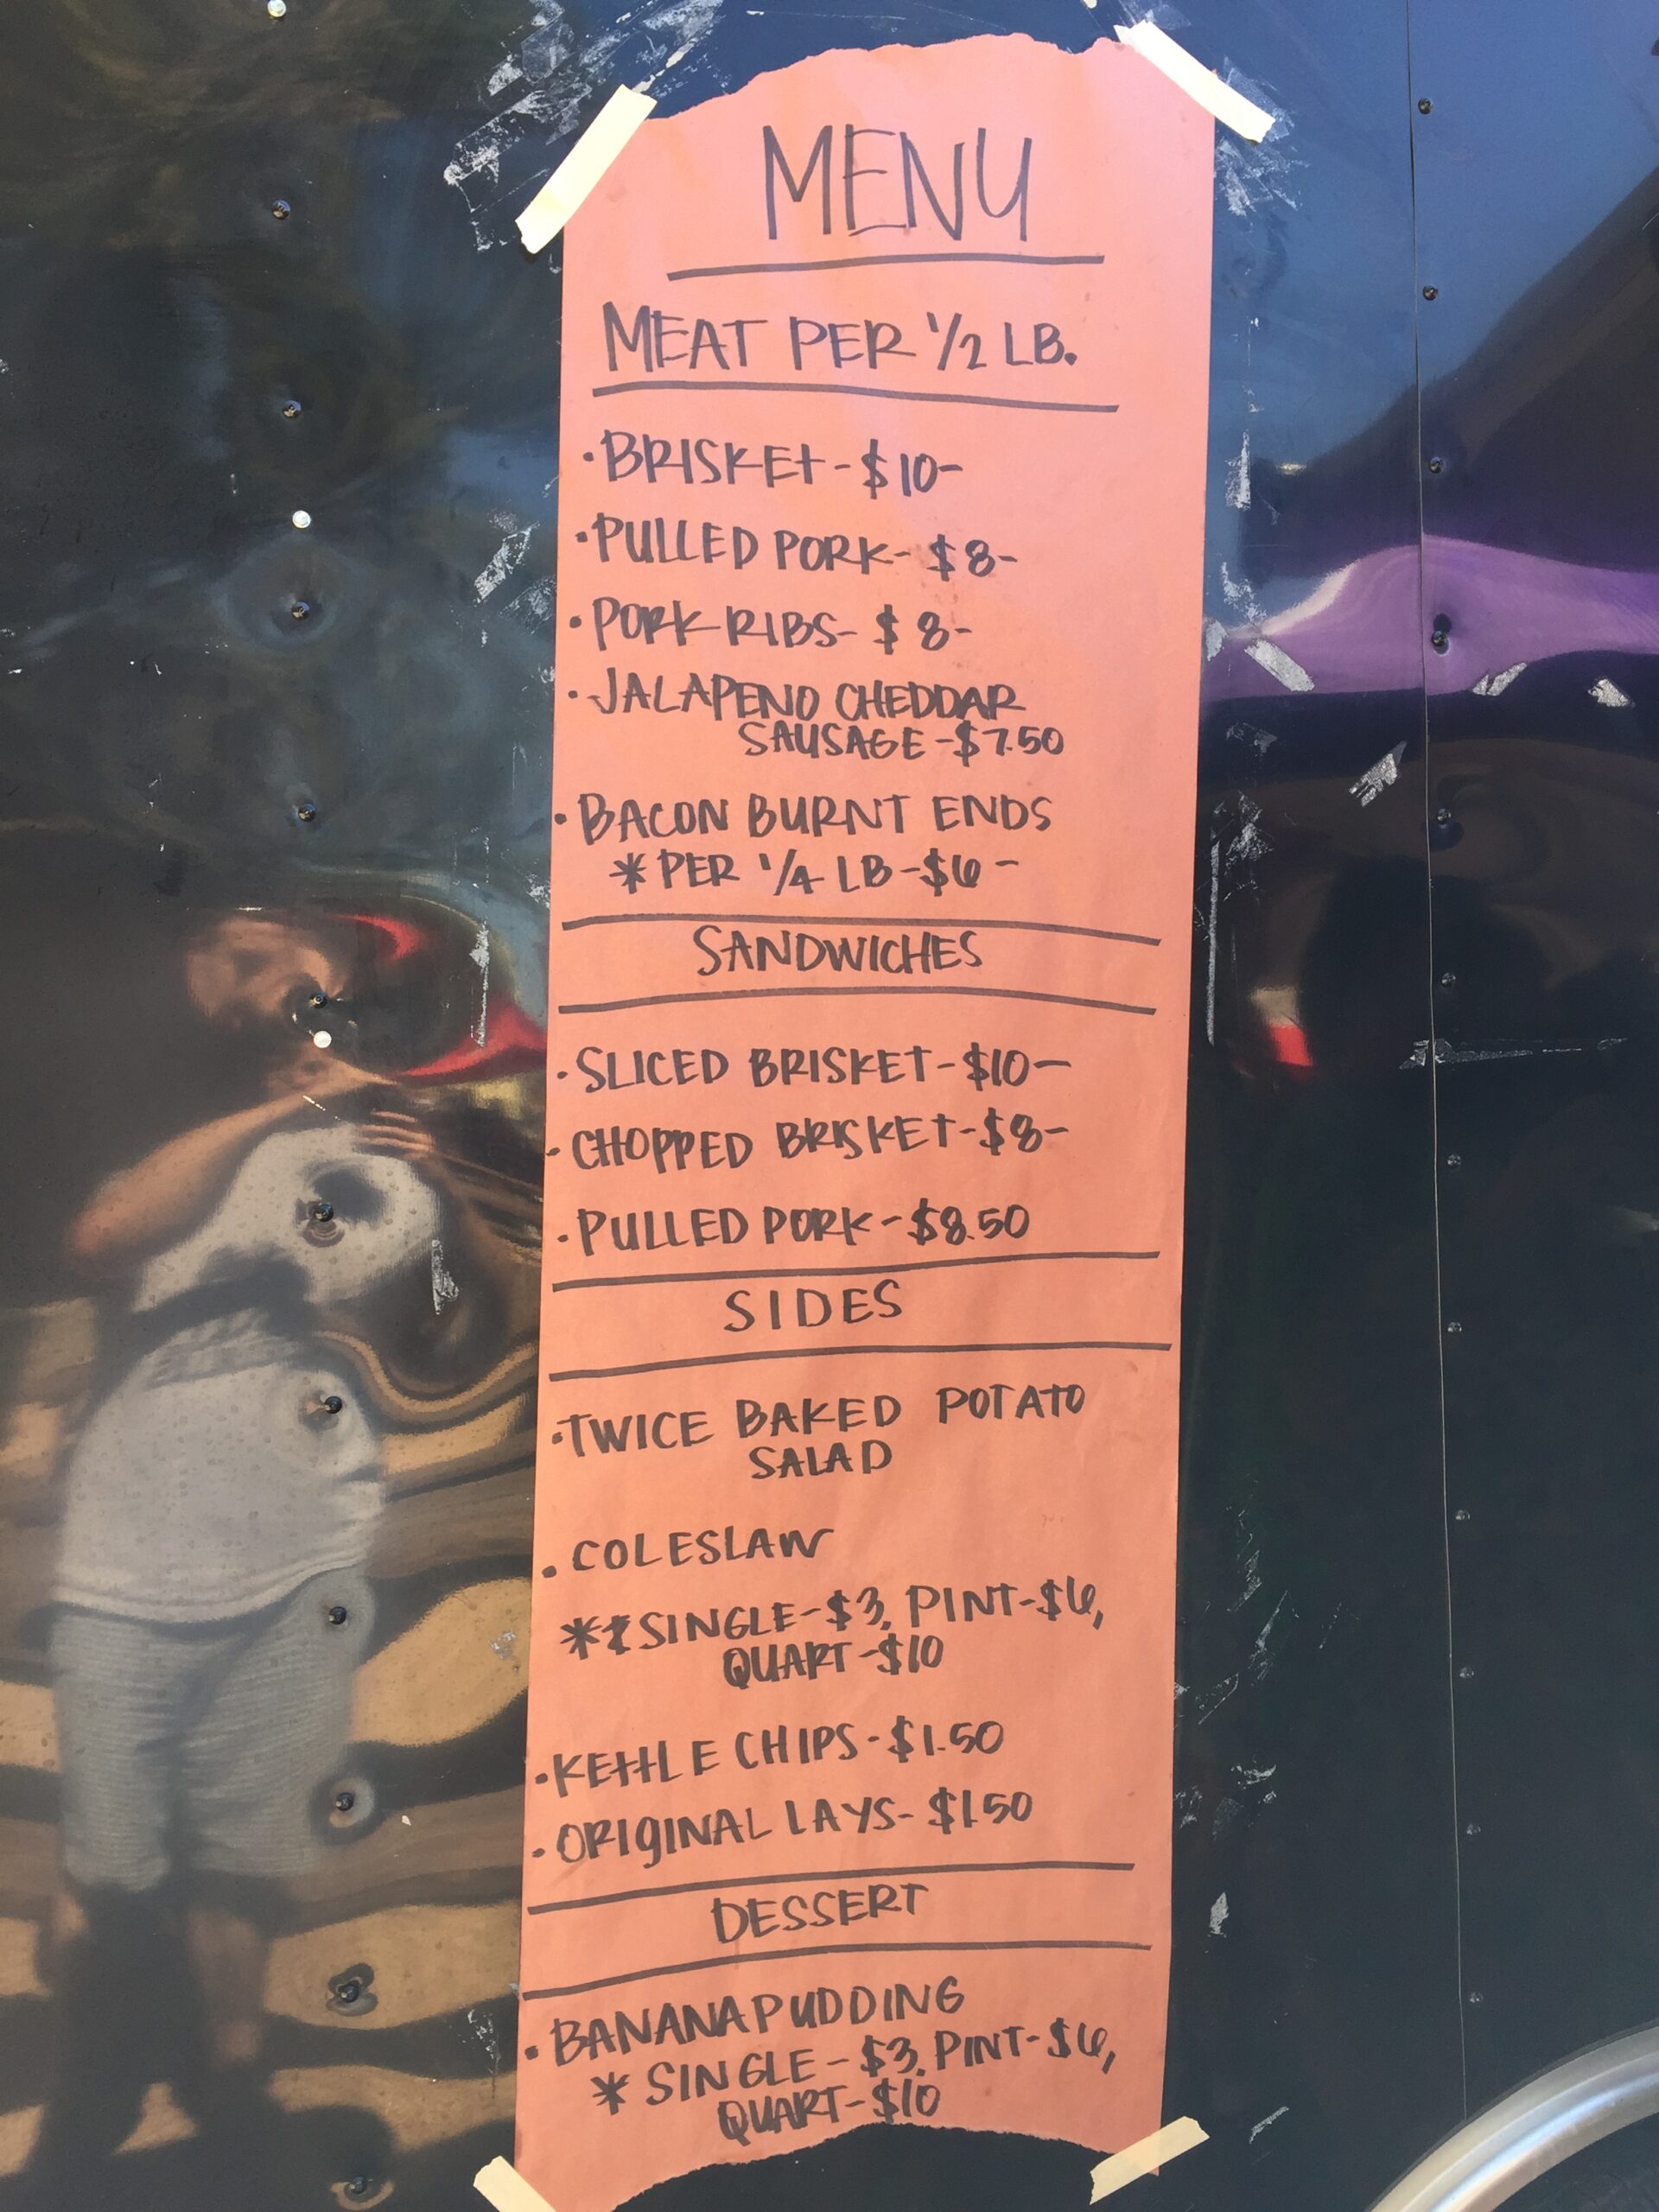 MENU
MEAT PER 1/2 LB.
• BRISKET - $10-
• PULLED PORK- $8-
• PORK RIBS- $8-
• JALAPENO CHEDDAR
SAUSAGE - $7.50
• BACON BURNT ENDS
* PER 1/4 LB - $6 -
SANDWICHES
• SLICED BRISKET - $10 —
• CHOPPED BRISKET - $8-
• PULLED PORK - $8.50
SIDES
• TWICE BAKED POTATO
SALAD
• COLESLAW
* SINGLE - $3, PINT - $6,
QUART - $10
• KETTLE CHIPS - $1.50
• ORIGINAL LAYS- $1.50
DESSERT
• BANANA PUDDING
* SINGLE - $3, PINT - $6,
QUART - $10